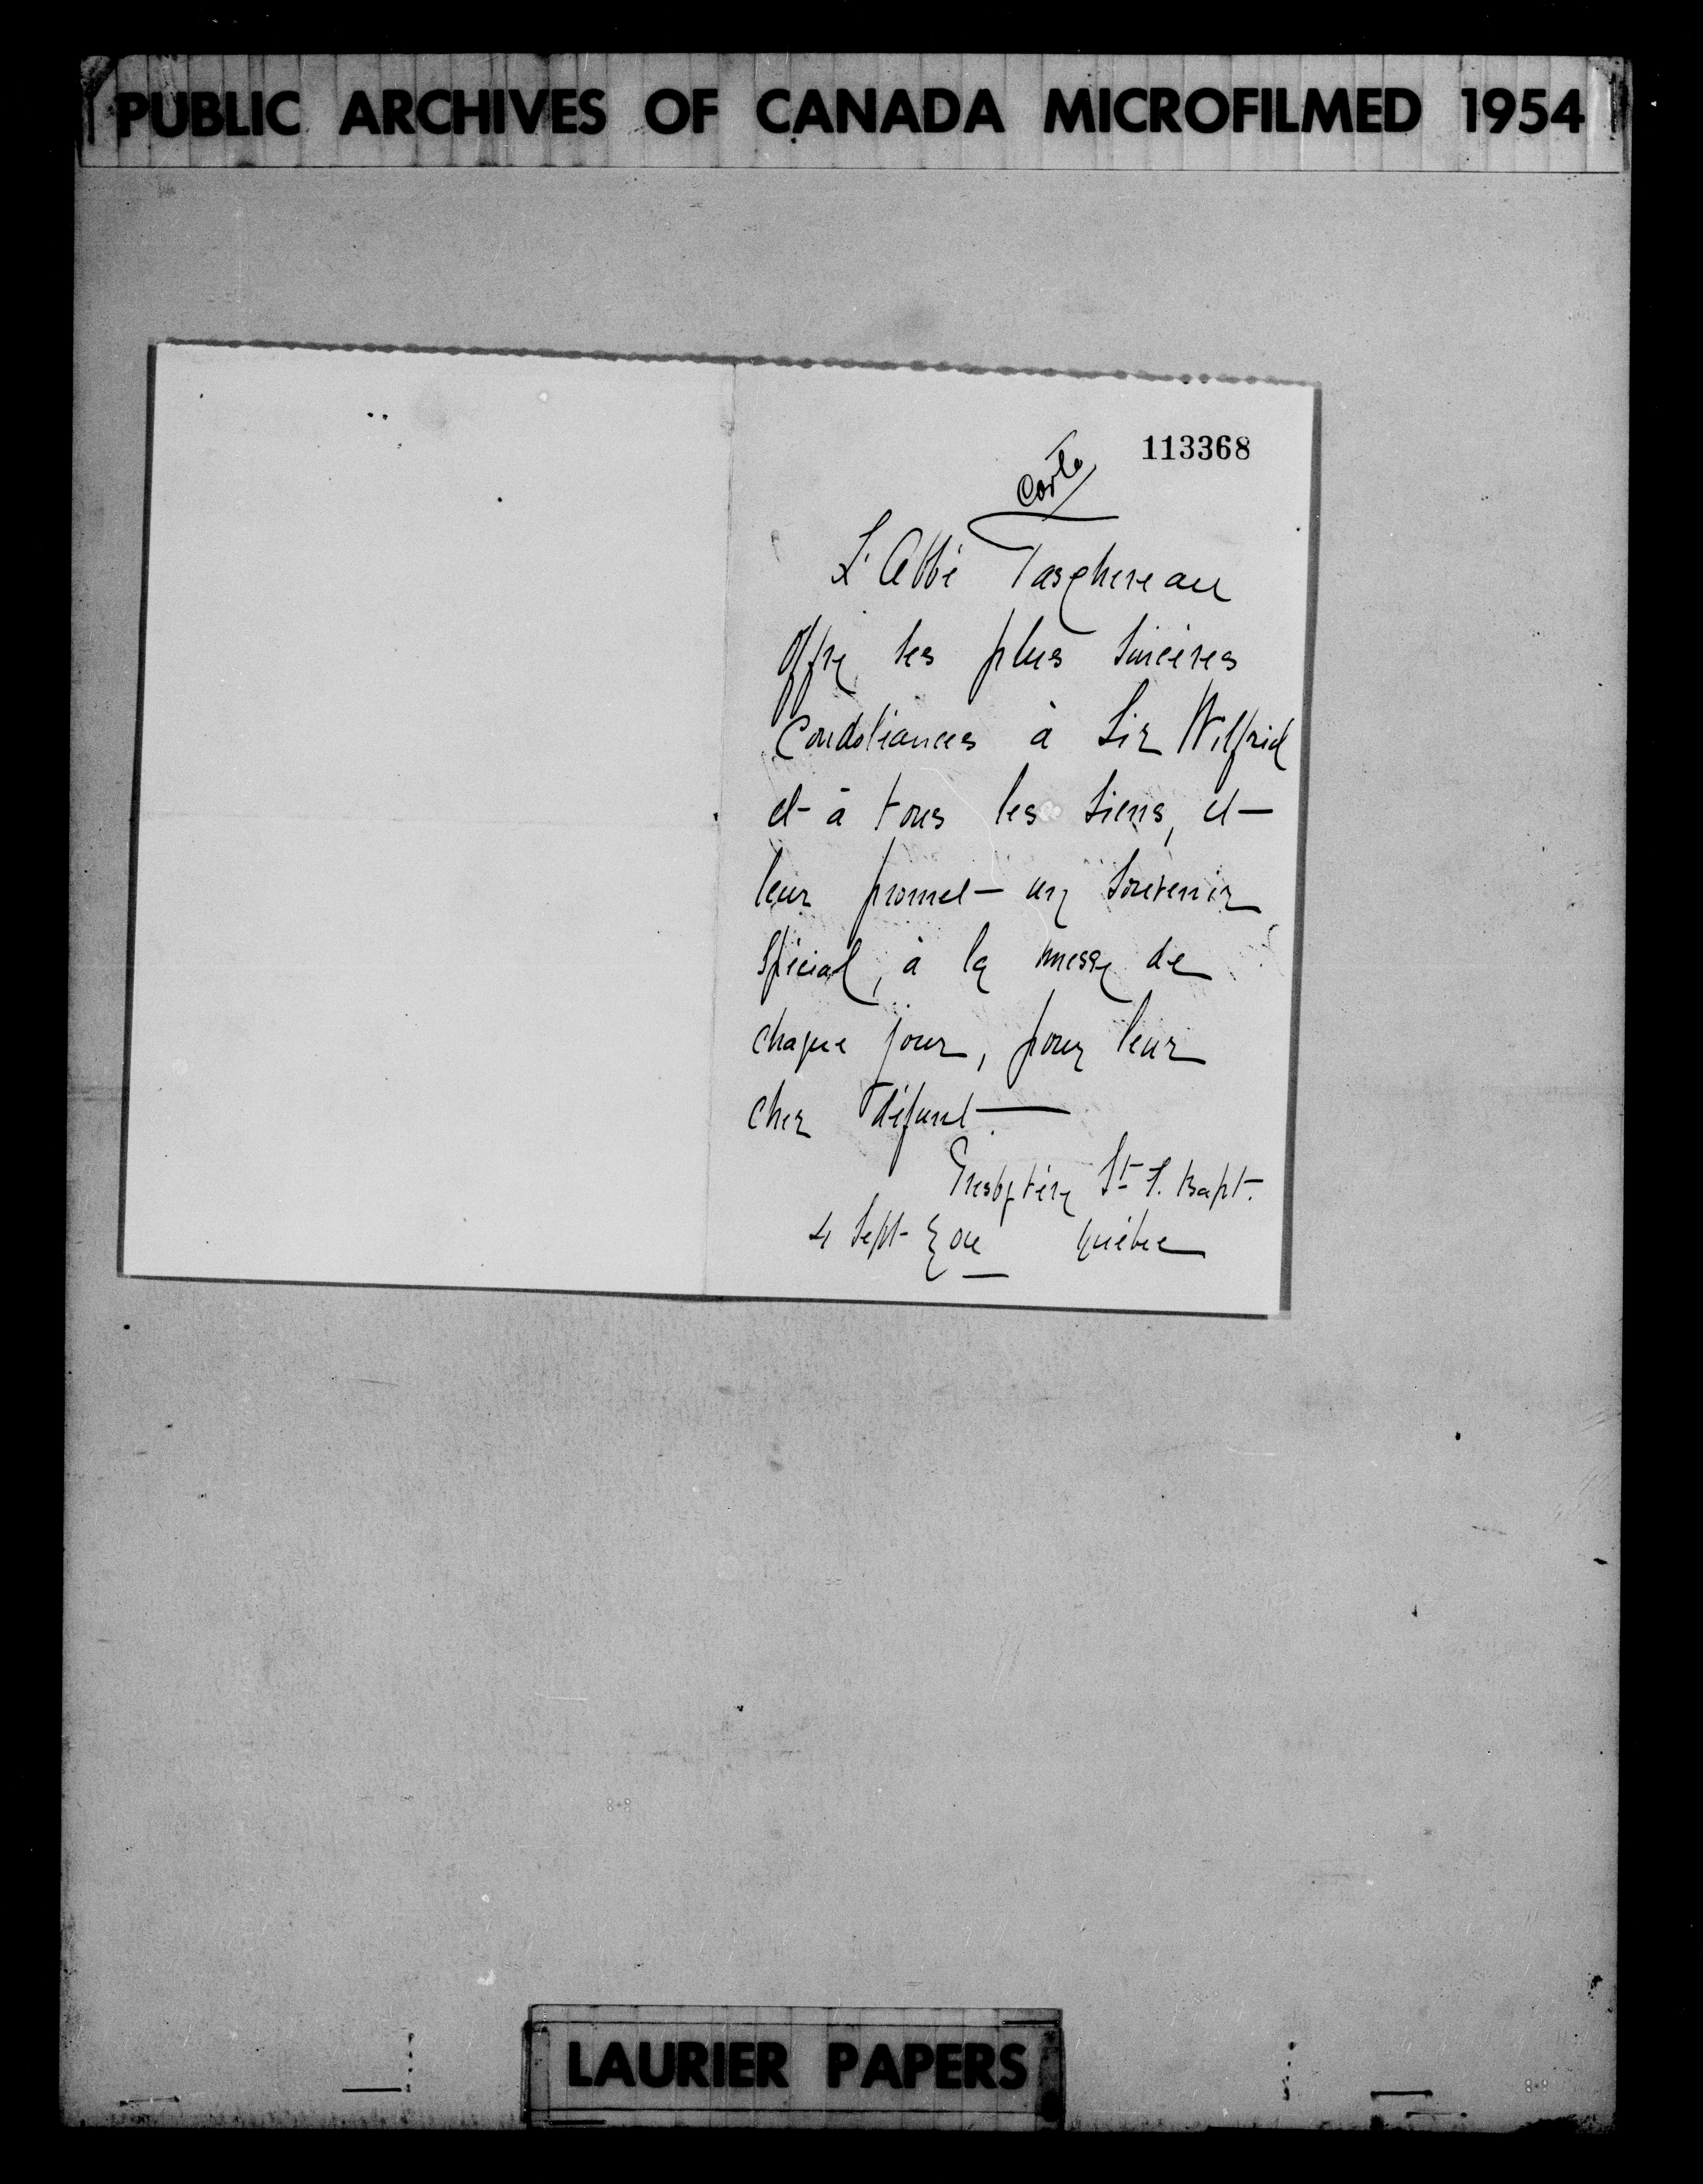 PUBLIC ARCHIVES OF CANADA MICROFILMED 1954
113368
Carte
L'Abbé Taschereau
offre ses plus sincères
Condoléances à Sir Wilfrid
et à tous les siens, et
leur promet un souvenir
spécial, à la messe de
chaque jour, pour leur
cher défunt.
Presbytère St J. Bapt.
4 Sept Québec
LAURIER PAPERS